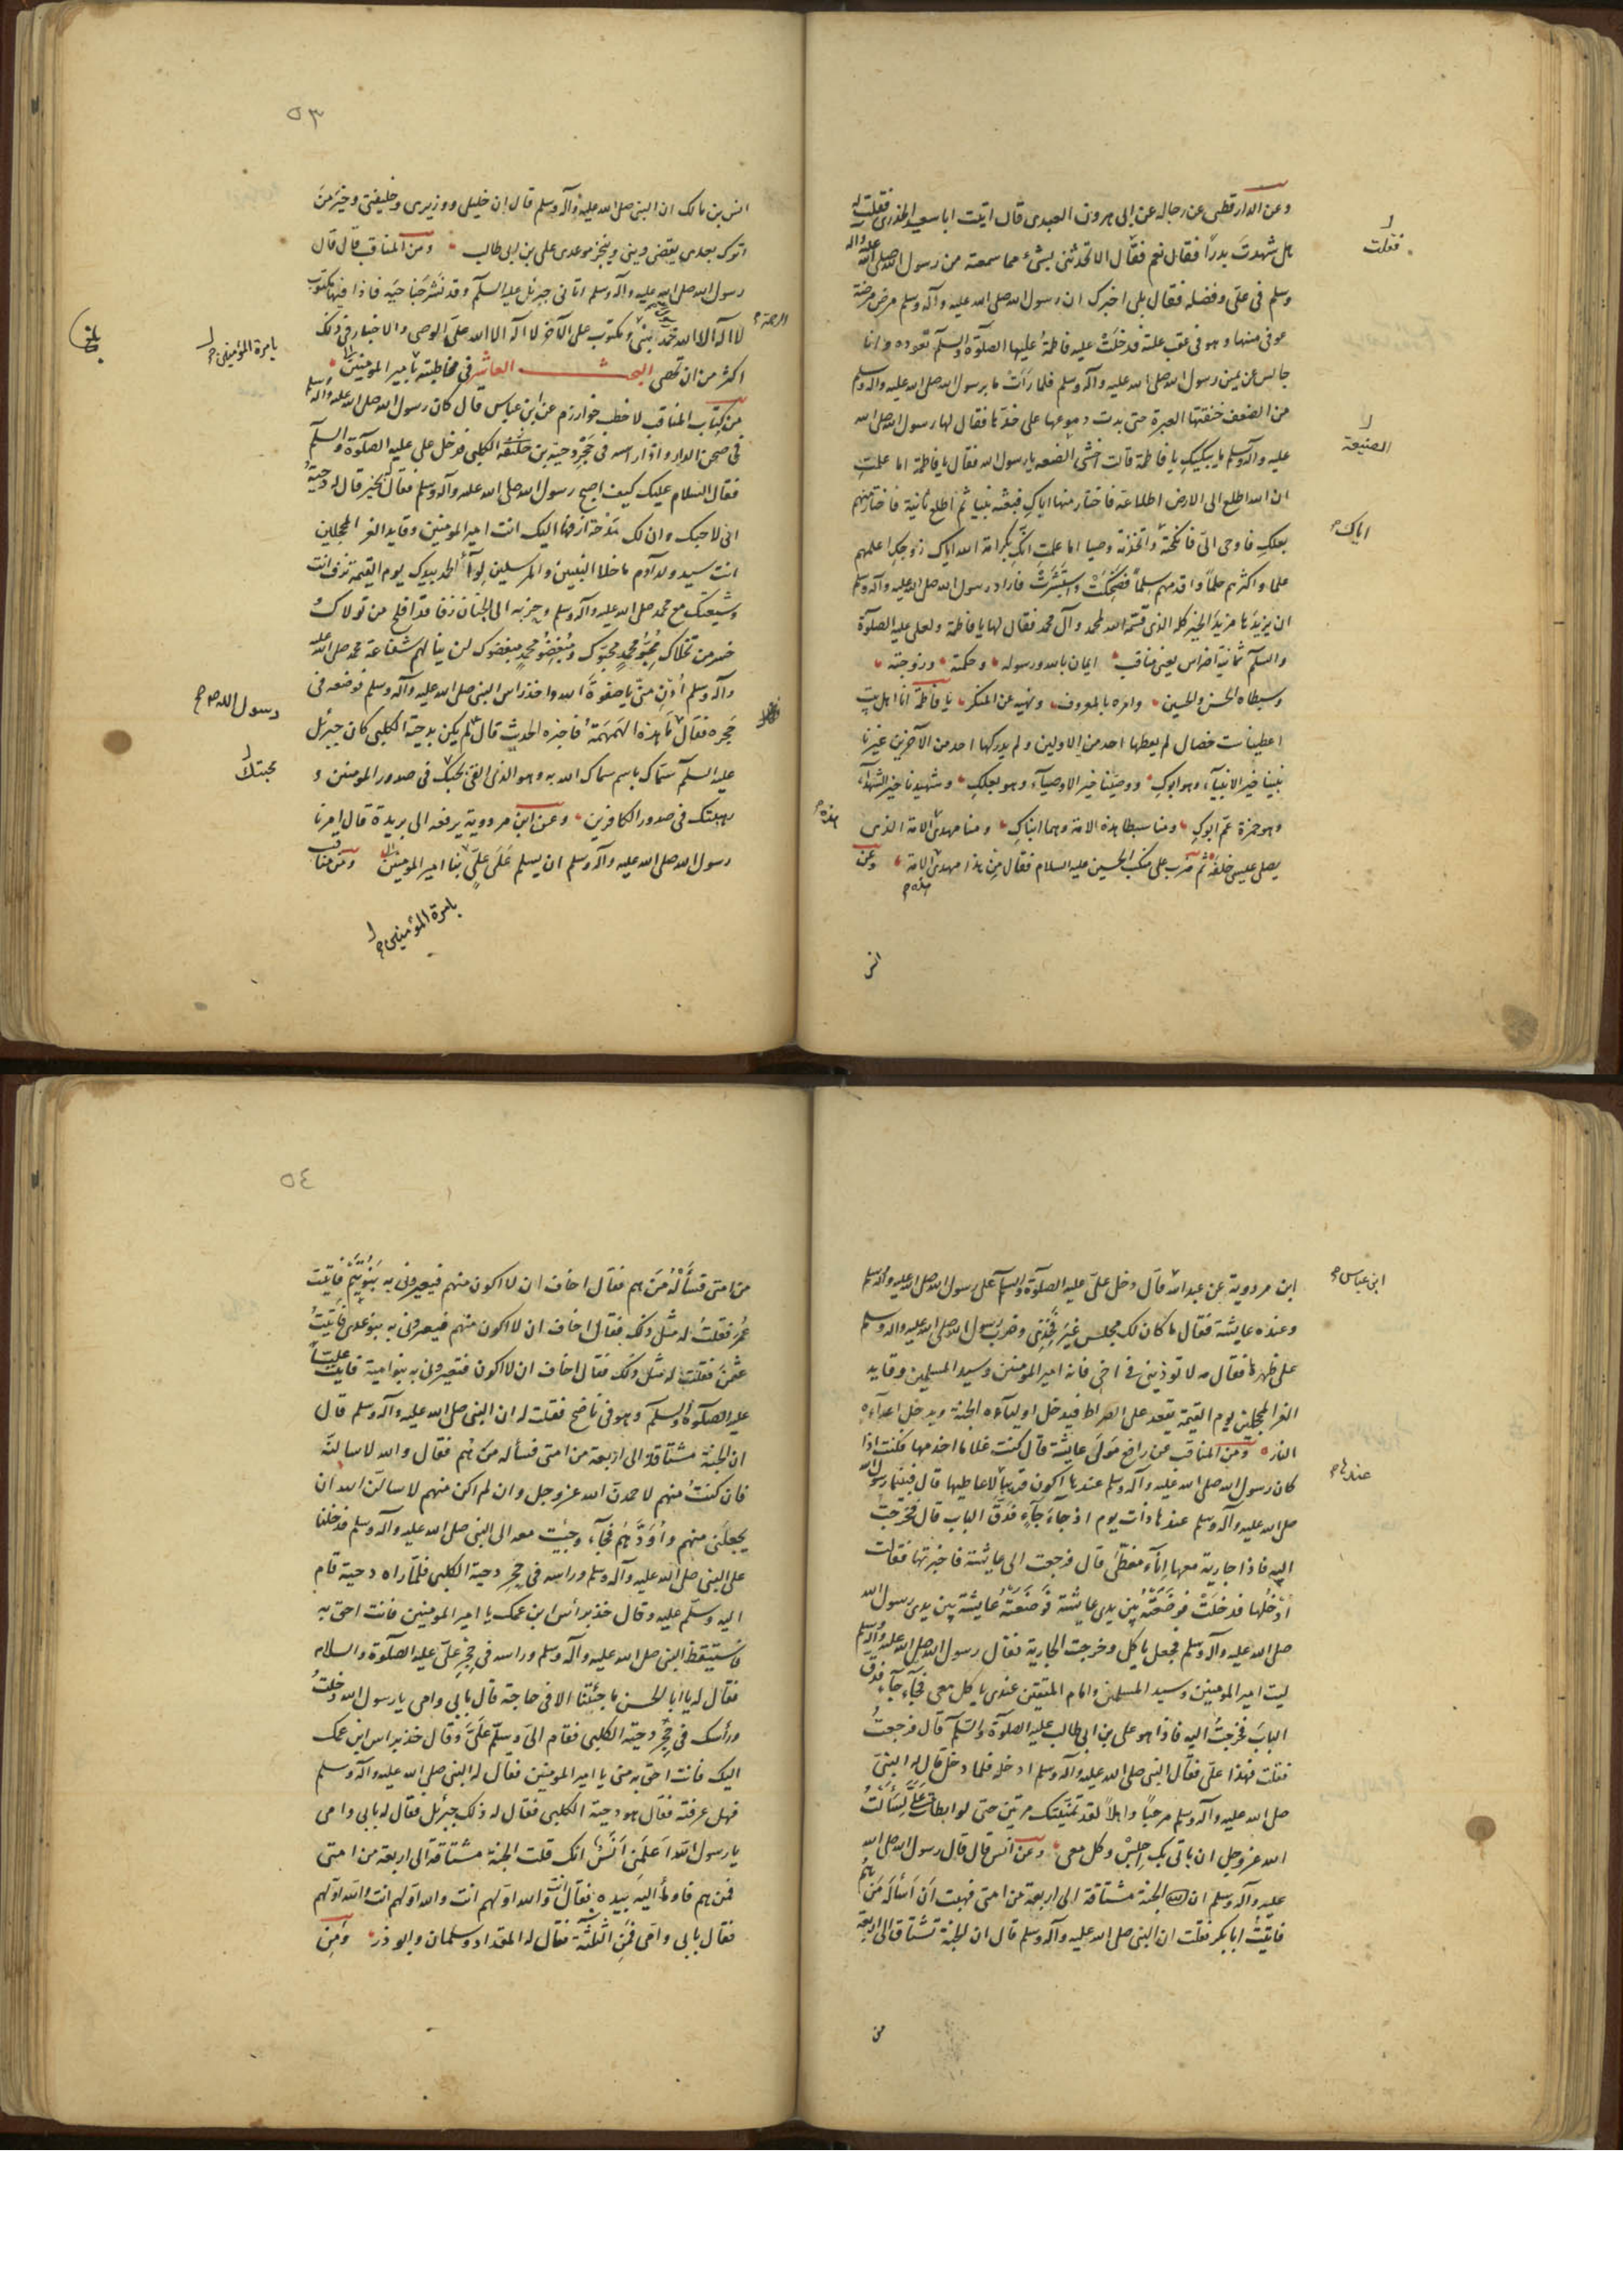 وعن الدارقطنى عن رجاله عن ابى هرون العبدى قال اتيت ابا سعيد الخدرى فقلت له
هل شهدت بدرًا فقال نعم فقال الا تحدثنى بشىء مما سمعته من رسول الله صلى الله عليه وآله
وسلم فى على وفضله فقال بلى اخبرك ان رسول الله صلى الله عليه وآله وسلم مرض مرضة
عوفى منها وهو فى عقب علته فدخلت عليه فاطمة عليها الصلوة والسلم تعوده وانا
جالس عن يمين رسول الله صلى الله عليه وآله وسلم فلما رأت ما برسول الله صلى الله عليه واله وسلم
من الضعف خنقتها العبرة حتى بدت دموعها على خدها فقال لها رسول الله صلى الله
عليه وآله وسلم ما يبكيكِ يا فاطمة قالت اخشى الضعه يا رسول الله فقال يا فاطمة اما علمتِ
ان الله اطلع الى الارض اطلاعة فاختار منها اباكِ فبعثه نبيا ثم اطلع ثانية فاختار منهم
بعلكِ فاوحى الىّ فانكحته واتخذته وصيا اما علمتِ انكِ بكرامة الله اياك زوجكِ اعلمهم
علما واكثرهم حلمًا واقدمهم سلمًا فضحكت واستبشرت فاراد رسول الله صلى الله عليه وآله وسلم
ان يزيدها مزيد الخير كله الذى قسمه الله لمحمد وآل محمد فقال لها يا فاطمة ولعلى عليه الصلوة
والسلم ثمانية اضراس يعنى مناقب ايمان بالله ورسوله وحكمته وزوجته
وسبطاه الحسن والحسين وامره بالمعروف ونهيه عن المنكر يا فاطمة انا اهل بيت
اعطينا ست خصال لم يعطها احد من الاولين ولم يدركها احد من الآخرين غيرنا
نبينا خير الانبيآء وهو ابوكِ ووصيّنا خير الاوصيآء وهو بعلكِ وشهيدنا خير الشهدآء
وهو حمزة عمّ ابوكِ ومنا سبطا هذه الامة وهما ابناكِ ومنا مهدى الامة الذى
يصلى عيسى خلفه ثم ضرب على منكب الحسين عليه السلام فقال مِن هذا مهدى الامة وعن
انس
فقلت
الصنيعة
اباك
هذه
هذه
٥٣
انس بن مالك ان النبى صلى الله عليه وآله وسلم قال ان خليلى ووزيرى وخليفتى وخير من
اترك بعدى يقضى دينى وينجز موعدى على بن ابى طالب ومن المناقب قال قال
رسول الله صلى الله عليه وآله وسلم اتانى جبرئيل عليه السلم وقد نشر جناحيه فاذا فيها مكتوب
لا اله الا الله محمد نبى ومكتوب على الآخر لا اله الا الله علىّ الوصى والاخبار فى ذلك
اكثر من ان تحصى البحث العاشر فى مخاطبته بامير المومنين
من كتاب المناقب لاخطب خوارزم عن ابن عباس قال كان رسول الله صلى الله عليه وآله وسلم
فى صحن الدار واذا راسه فى حجر دحية بن خليفة الكلبى فدخل على عليه الصلوة والسلم
فقال السلام عليك كيف اصبح رسول الله صلى الله عليه وآله وسلم فقال بخير قال له دحية
انى لاحبك وان لك مدحة ازفها اليك انت امير المومنين وقايد الغر المحجلين
انت سيد ولد آدم ما خلا النبيين والمرسلين لوآء الحمد بيدك يوم القيمة تزف انت
وشيعتك مع محمد صلى الله عليه وآله وسلم وحزبه الى الجنان زفا قد افلح من تولاك و
خسر من تخلاك محبّو محمد محبّوك ومبغضو محمد مبغضوك لن ينالهم شفاعة محمد صلى الله عليه
وآله وسلم أدن منّى يا صفوة الله واخذ راس النبى صلى الله عليه وآله وسلم فوضعه فى
حجره فقال ما هذه الهمهمة فاخبره الحديث قال لم يكن بدحية الكلبى كان جبرئيل
عليه السلم سمّاك باسم سماك الله به وهو الذى القى محبتك فى صدور المومنين و
رهبتك فى صدور الكافرين وعن ابن مردوية يرفعه الى بريدة قال امرنا
رسول الله صلى الله عليه وآله وسلم ان نسلم على علىّ بيا امير المومنين ومن مناقب
الرحمة
بامرة المؤمنين
رسول الله ص
محبتك
بامرة المؤمنين
ابن مردوية عن عبد الله قال دخل علىّ عليه الصلوة والسلم على رسول الله صلى الله عليه وآله وسلم
وعنده عايشة فقال ما كان لك مجلس غير فخذى وضرب رسول الله صلى الله عليه واله وسلم
على ظهرها فقال مه لا توذينى فى اخى فانه امير المومنين وسيد المسلمين وقايد
الغر المحجلين يوم القيمة يقعد على الصراط فيدخل اولياءه الجنة ويدخل اعداءه
النار ومن المناقب عن رافع مولى عايشة قال كنت غلاما اخدمها فكنت اذا
كان رسول الله صلى الله عليه وآله وسلم عندها اكون قريبا لاعاطيها قال فبينما رسول الله
صلى الله عليه وآله وسلم عندها ذات يوم اذ جآء جآءٍ فدقّ الباب قال فخرجت
اليه فاذا جارية معها اناء مغطّى قال فرجعت الى عايشة فاخبرتها فقالت
ادخلها فدخلت فوضعته بين يدى عايشة فوضعته عايشة بين يدى رسول الله
صلى الله عليه وآله وسلم فجعل ياكل وخرجت الجارية فقال رسول الله صلى الله عليه وآله وسلم
ليت امير المومنين وسيد المسلمين وامام المتقين عندى ياكل معى فجآء جآءٍ فدق
الباب فخرجتُ اليه فاذا هو على بن ابى طالب عليه الصلوة والسلم قال فرجعتُ
فقلت فهذا علىّ فقال النبى صلى الله عليه وآله وسلم ادخله فلما دخل قال له النبى
صلى الله عليه وآله وسلم مرحبًا واهلاً لقد تمنيتك مرتين حتى لو ابطات علىّ لسألت
الله عزوجل ان ياتى بك اجلس وكل معى وعن انس قال قال رسول الله صلى الله
عليه وآله وسلم ان الجنة مشتاقة الى اربعة من امتى فهبت ان اسأله من هم
فاتيت ابا بكر فقلت ان النبى صلى الله عليه وآله وسلم قال ان الجنة تشتاق الى اربعة
من
ابن عباس
عندها
٥٤
من امتى فسأله من هم فقال اخاف ان لا اكون منهم فيعيرونى به بنو تيم فاتيت
عمر فقلت له مثل ذلك فقال اخاف ان لا اكون منهم فيعيرونى به بنو عدى فاتيت
عثمن فقلت له مثل ذلك فقال اخاف ان لا اكون فتعيرونى به بنو امية فاتيت عليًا
عليه الصلوة والسلم وهو فى ناضح فقلت له ان النبى صلى الله عليه وآله وسلم قال
ان الجنة مشتاقة الى اربعة من امتى فسأله من هم فقال والله لاسالنّه
فان كنت منهم لاحمدنّ الله عزوجل وان لم اكن منهم لاسالنّ الله ان
يجعلنى منهم واودّهم فجآء وجئت معه الى النبى صلى الله عليه وآله وسلم فدخلنا
على النبى صلى الله عليه وآله وسلم وراسه فى حجر دحية الكلبى فلما راه دحية قام
اليه وسلّم عليه وقال خذ براس ابن عمك يا امير المومنين فانت احق به
فاستيقظ النبى صلى الله عليه وآله وسلم وراسه فى حجر علىّ عليه الصلوة والسلام
فقال له يا ابا الحسن ما جئتنا الا فى حاجة قال بابى وامى يا رسول الله دخلت
ورأسك فى حجر دحية الكلبى فقام الىّ وسلّم علىّ وقال خذ براس ابن عمك
اليك فانت احق به منى يا امير المومنين فقال له النبى صلى الله عليه وآله وسلم
فهل عرفته فقال هو دحية الكلبى فقال له ذلك جبرئيل فقال له بابى وامى
يا رسول الله اعلمنى انس انك قلت الجنة مشتاقة الى اربعة من امتى
فمن هم فاومأ اليه بيده فقال انت والله اولهم انت والله اولهم انت والله اولهم
فقال بابى وامى فمن الثلثة فقال له المقداد وسلمان وابو ذر ومن